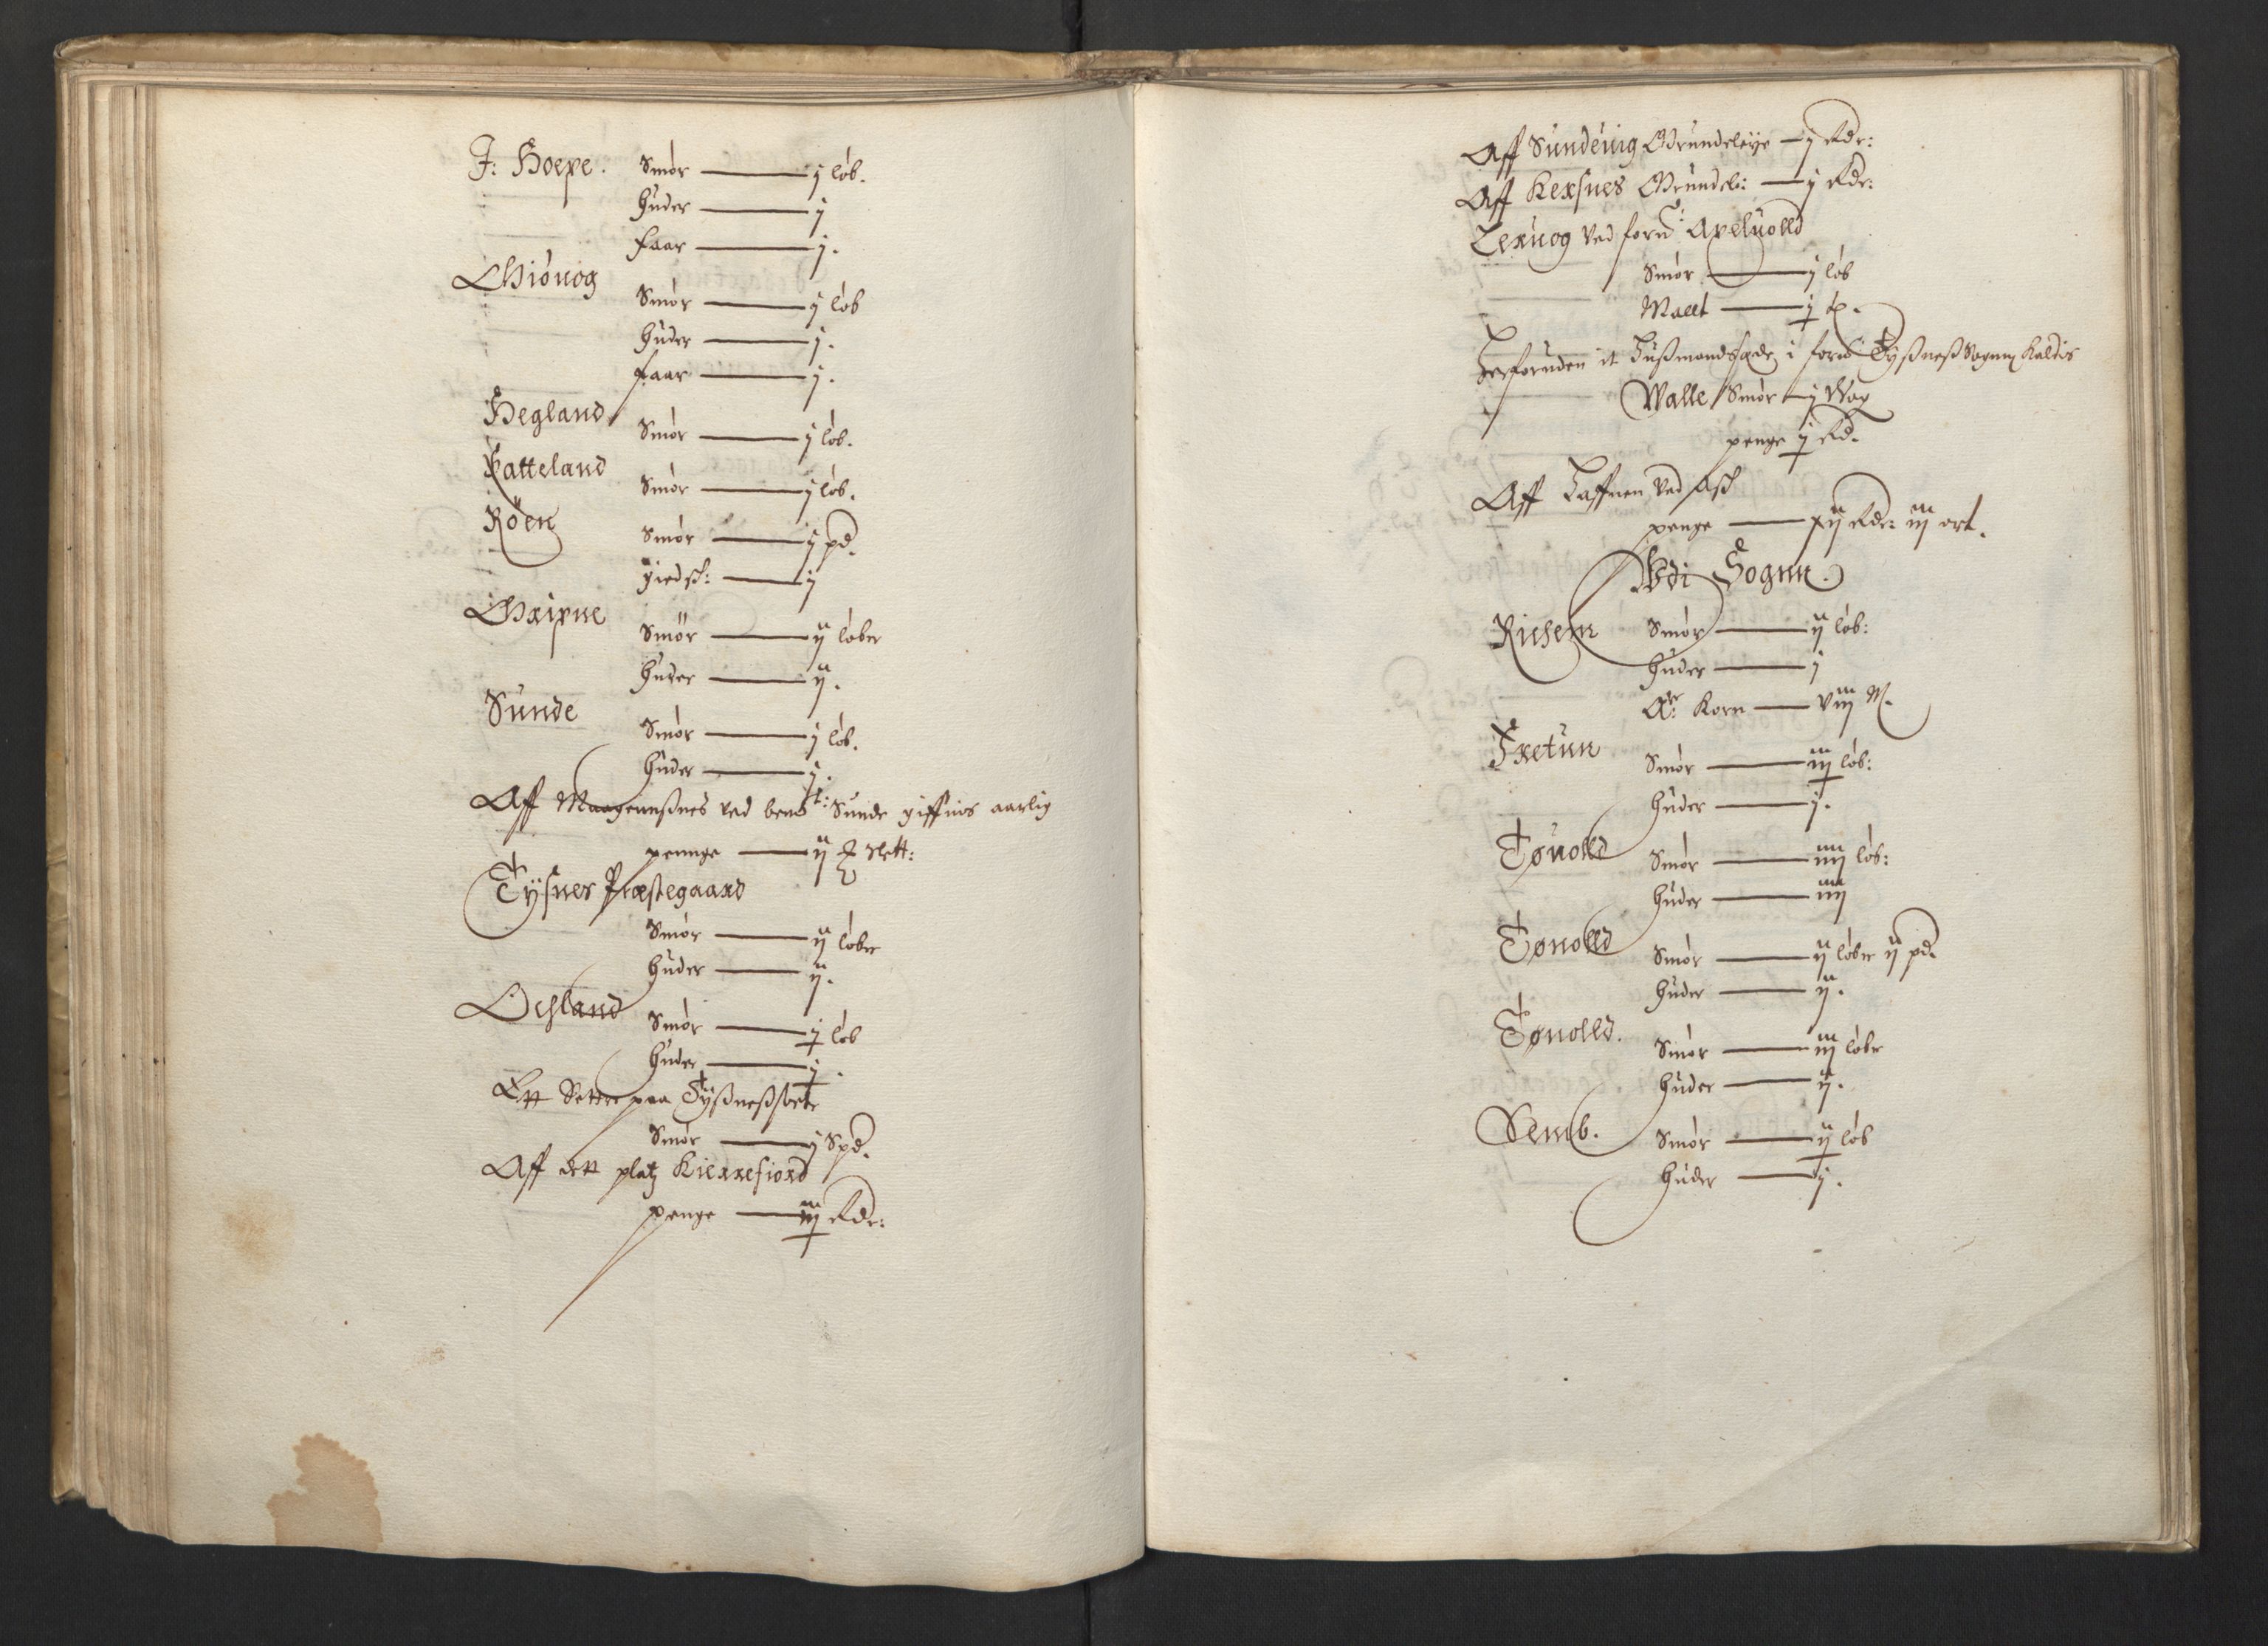 J: Hoepe. Smør — j løb.
Huder — j
Faar — j.
Miöuog Smør — j løb
Huder — j.
Faar — j.
Hegland Smør — j løb.
Tatteland Smør — j løb.
Röen Smør — j pd.
giedsk: — j
Gripne Smör — ij løber
Huder — ij.
Sunde Smør — j løb.
Huder — j.
Aff Maagennßnes ved bemt: Sunde giffuis aarlig
pennge — ij slett:
Tÿsnes Præstegaard
Smør — ij løber
Huder — ij.
Oesland Smør — j løb
Huder — j.
Ett paa Tÿßneß
Smør — j Spd.
Aff dett platz Kierrefiord
penge — iij Rdr:
Aff Sundeuig Grundeleye — j Rdr:
Aff Kersnes Grundel: — j Rdr:
Leruog ved fornd: Areluolld
Smør — j løb
Malt — j tp.
Herforuden it Hußmandssæde i fornd Tÿßneß Sogun Kaldis
Walle Smør — j Wog
penge j Rd.
Aff Haffnen ved Ask
penge — xij Rdr: iij ort.
Udi Sogun.
Riisem Smør — ij løb:
Huder — j
Korn — viij M.
Tretun Smør — iij løb:
Huder — j.
Tøuolld Smør — iiij løb:
Huder — iiij
Tøuolld Smør — ij løber ij pd.
Huder — ij.
Tøuolld. Smør — iij løbe
Huder — ij.
Semb. Smør — ij løb
Huder — j.